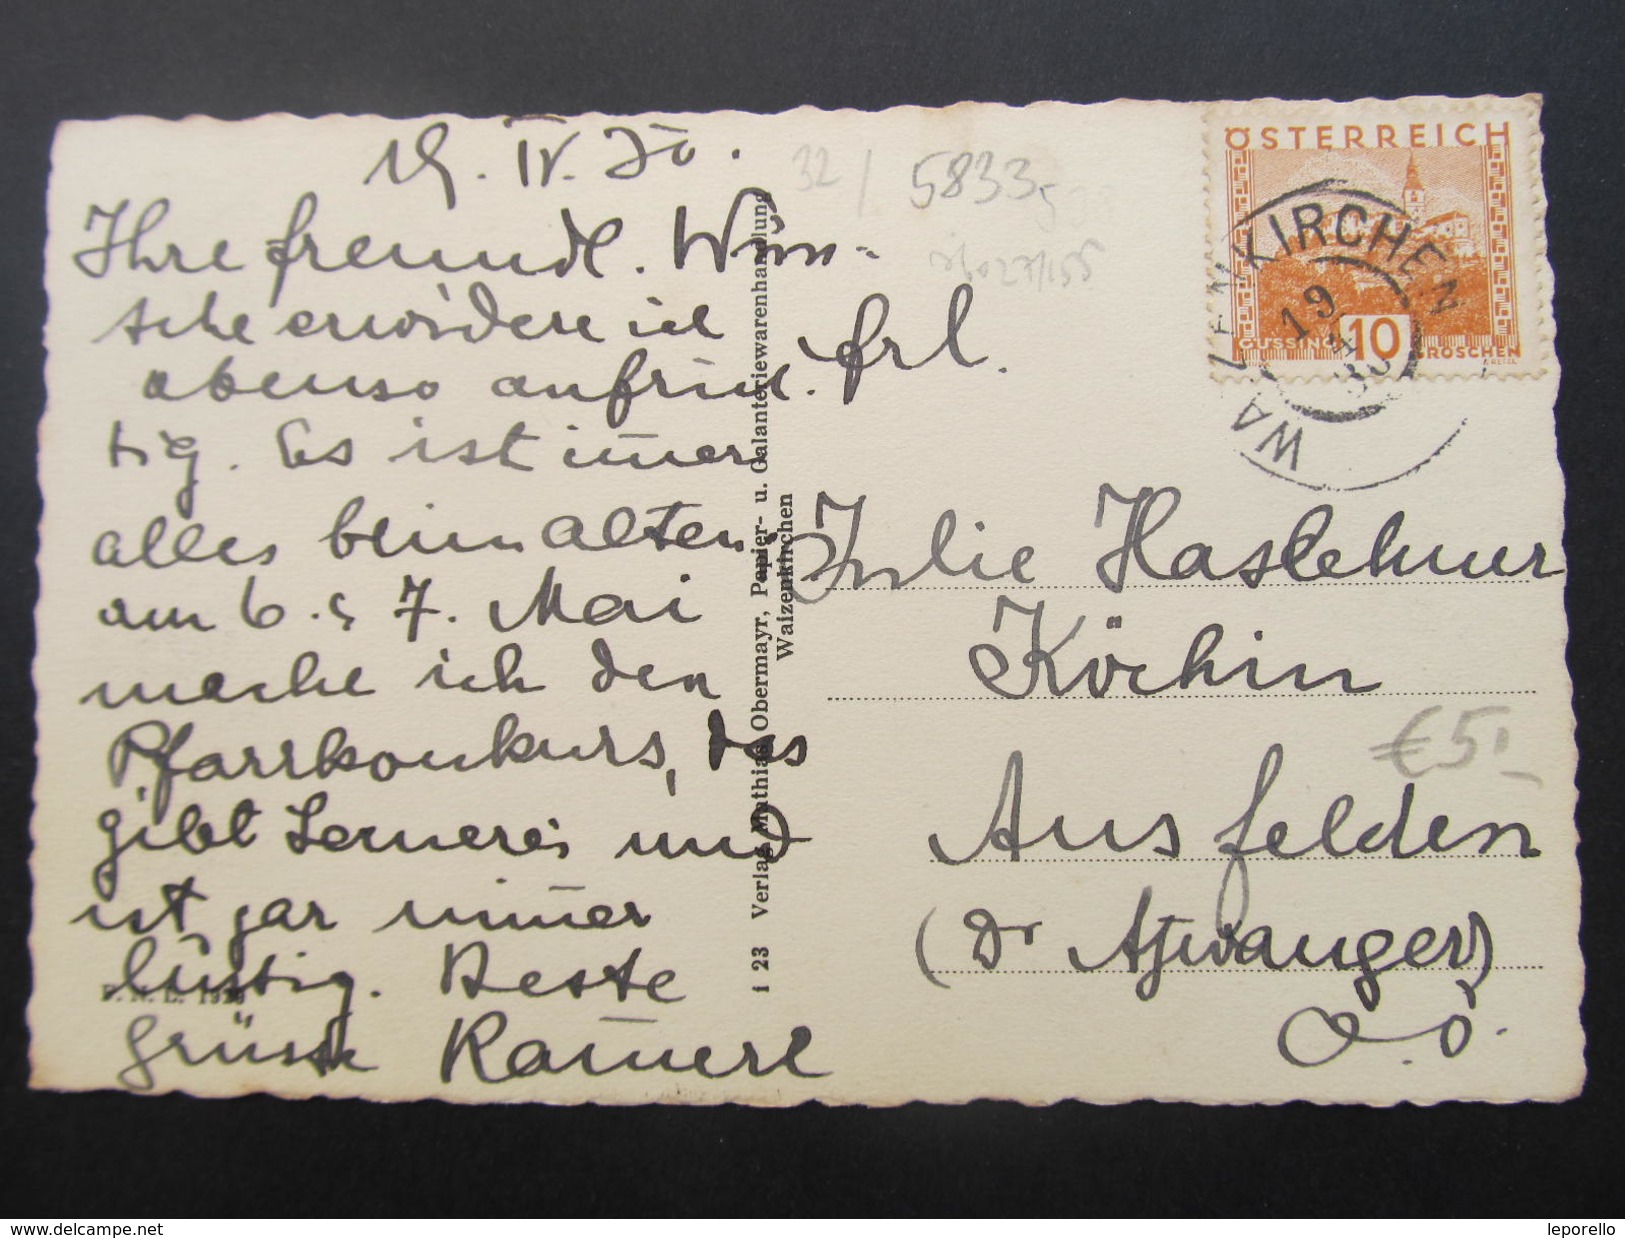 19. IV. 30.
Ihre freundl. Wün-
sche erwidere ich
ebenso aufrich-
tig. Es ist immer
alles beim alten,
am 6. & 7. Mai
mache ich den
Pfarrkonkurs, das
gibt Lernerei und
ist gar immer
lustig. Beste
Grüsse Rammerl
i 23 Verlag Mathias Obermayr, Papier- u. Galanteriewarenhandlung
Waizenkirchen
32 / 5833
ÖSTERREICH
GÜSSING 10 GROSCHEN
WAIZENKIRCHEN
19
Frl.
Julie Haslehner
Köchin
€ 5,-
Ansfelden
(Dr Atzwanger)
O.Ö.
www.delcampe.net
leporello